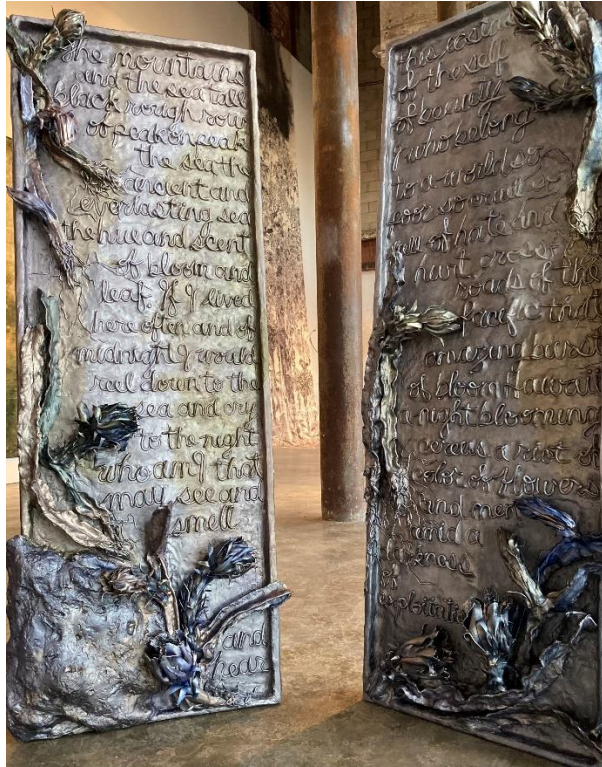 The mountains
and the sea tall
black rough row
of peak on peak
the sea the
ancient and
everlasting sea
the hue and scent
of bloom and
leaf. If I lived
here often and of
midnight I would
reel down to the
sea and cry
to the night
who am I that
may see and
smell
and
hear
of the self
of beauty
I who belong
to a world so
poor so cruel so
full of hate and
hurt cross
roads of the
Pacific that
amazing burst
of bloom Hawaii
a night blooming
cereus a riot of
color of flowers
and men
amid a
darkness
of
exploitation